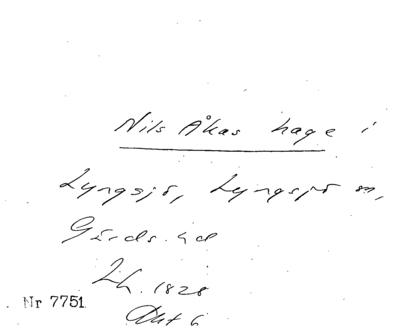 Nils Åkas hage i
Lyngsjö, Lyngsjö m,
Gärds. hd
Lh. 1828
Nr 7751
Akt 6